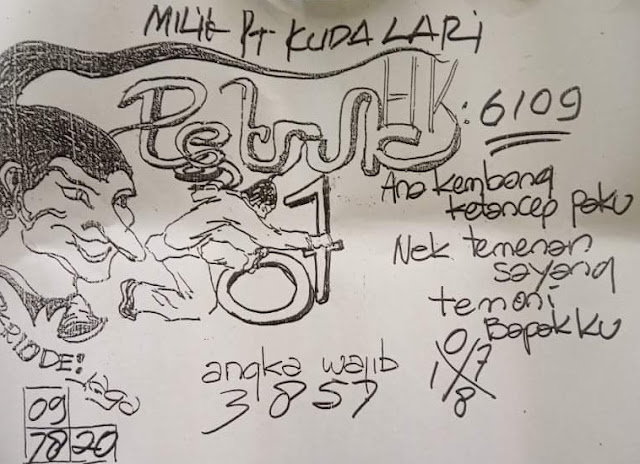 MILIK PT KUDA LARI
Petruk
HK: 6109
01
Ana kembang
ketancep paku
Nek temenan
sayang
temoni
Bapakku
PERIODE:
angka wajib
3 8 5 7
0
1 7
8
09
78 20